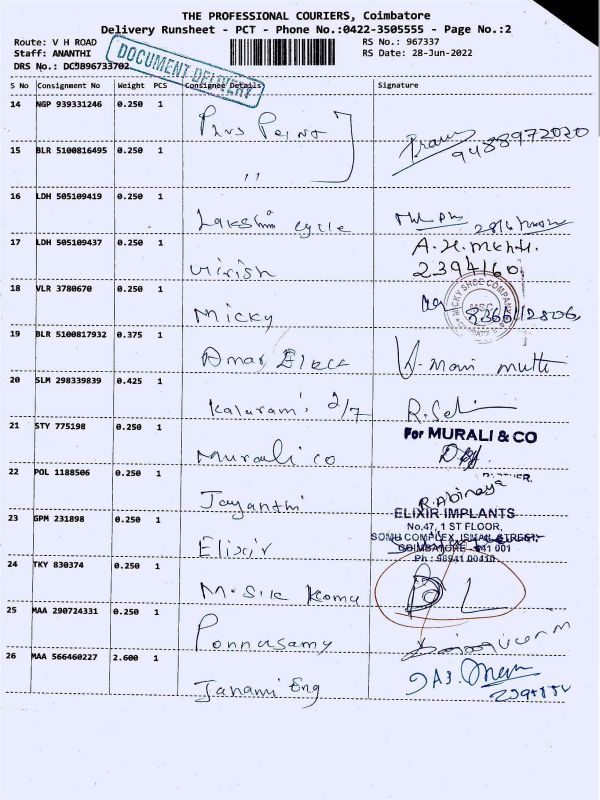 THE PROFESSIONAL COURIERS, Coimbatore
Delivery Runsheet - PCT - Phone No.:0422-3505555 - Page No.:2
Route: V H ROAD RS No.: 967337
Staff: ANANTHI RS Date: 28-Jun-2022
DRS No.: DCJB96733702
DOCUMENT DELIVERY
S No Consignment No Weight PCS Consignee Details Signature
14 NGP 939331246 0.250 1
9488972020
15 BLR 5100816495 0.250 1 "
16 LDH 505109419 0.250 1 Lakshmi cycle
17 LDH 505109437 0.250 1 A.H.
2394160
18 VLR 3780670 0.250 1 Micky
MICKY SHOE COMPANY
MSC
19 BLR 5100817932 0.375 1 Amar Elect V. Mani mutti
20 SLM 298339839 0.425 1 Kalarami 2/7
21 STY 775198 0.250 1 Murali co For MURALI & CO
22 POL 1188506 0.250 1 Jayanthi R. Abinaya
23 GPM 231898 0.250 1 Elixir ELIXIR IMPLANTS
No.47, 1 ST FLOOR,
SOMU COMPLEX, ISMAIL STREET,
COIMBATORE - 641 001
24 TKY 830374 0.250 1 M. Silk
25 MAA 290724331 0.250 1 Ponnusamy
26 MAA 566460227 2.600 1 Janami Eng